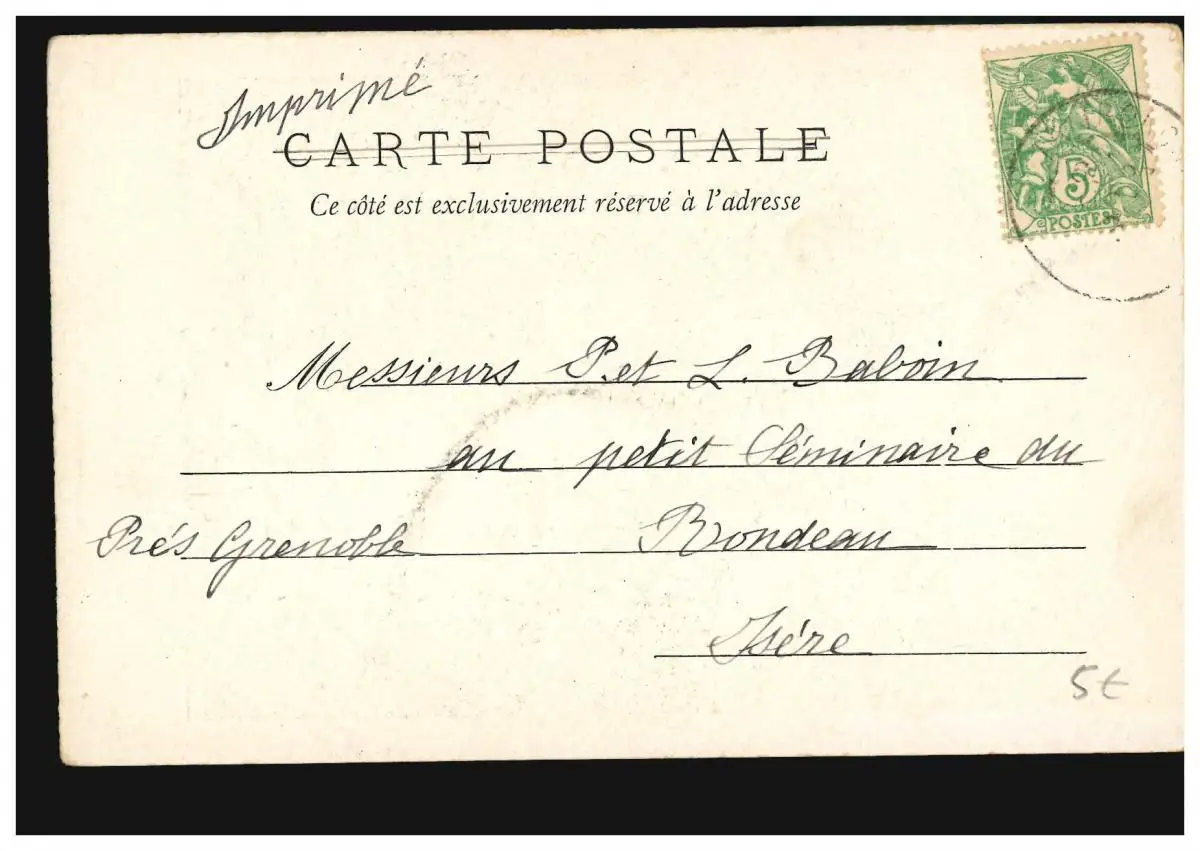 Imprimé
CARTE POSTALE
Ce côté est exclusivement réservé à l'adresse
5c
POSTES
Messieurs P. et L. Baboin
au petit Séminaire du
Prés Grenoble Rondeau
Isére
5€